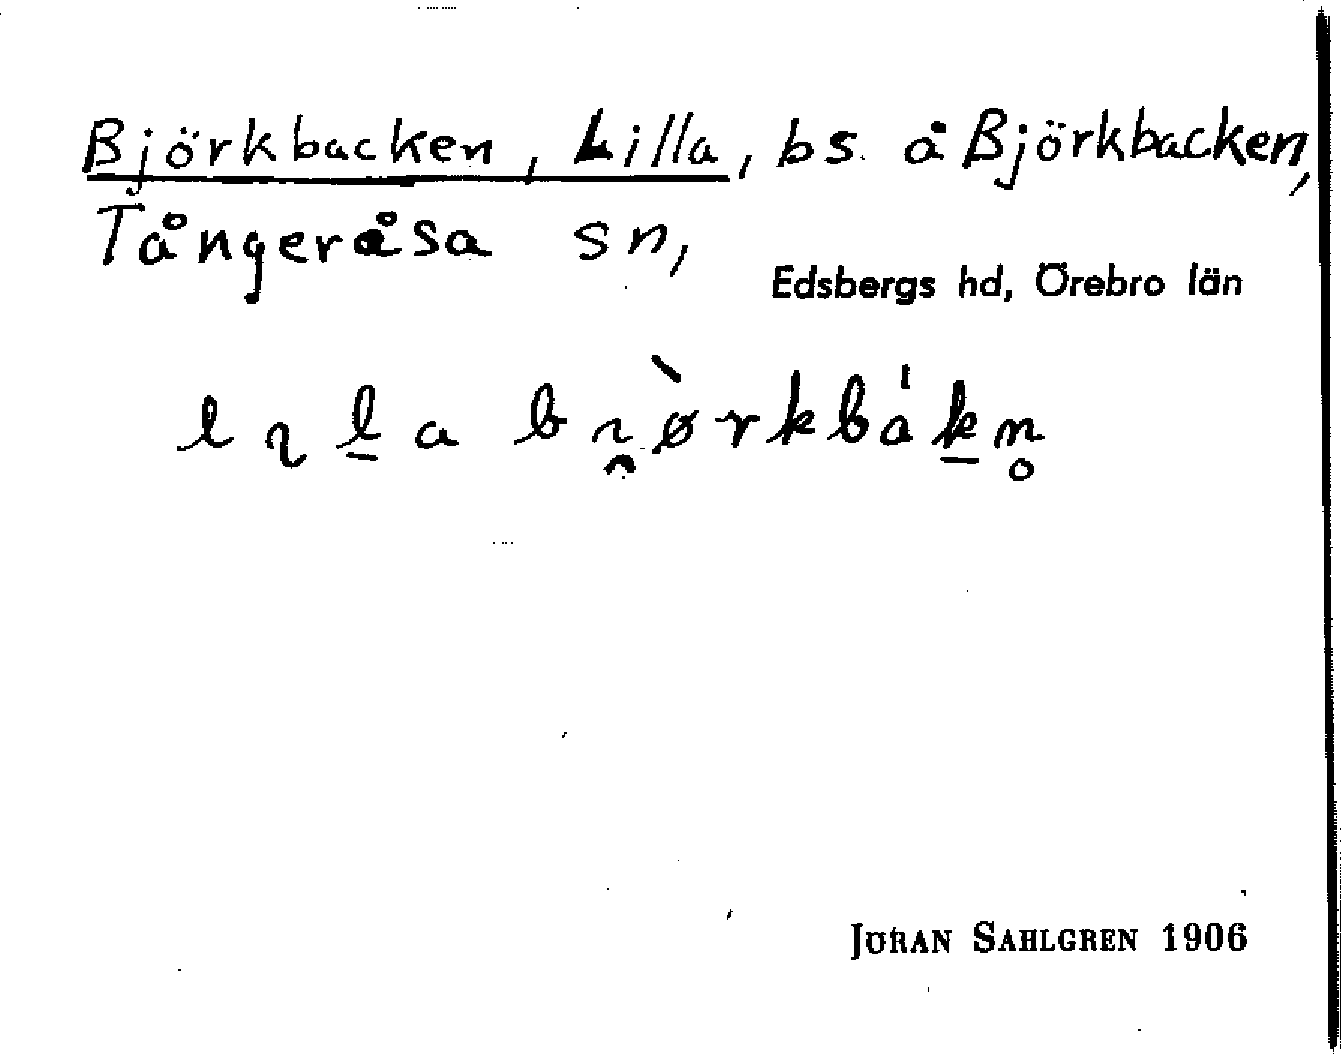 Björkbacken, Lilla, bs. å Björkbacken,
Tångeråsa sn,
Edsbergs hd, Örebro län
lɩl̠a bɩ̯ø̀rkbák̠n̥
JÖRAN SAHLGREN 1906